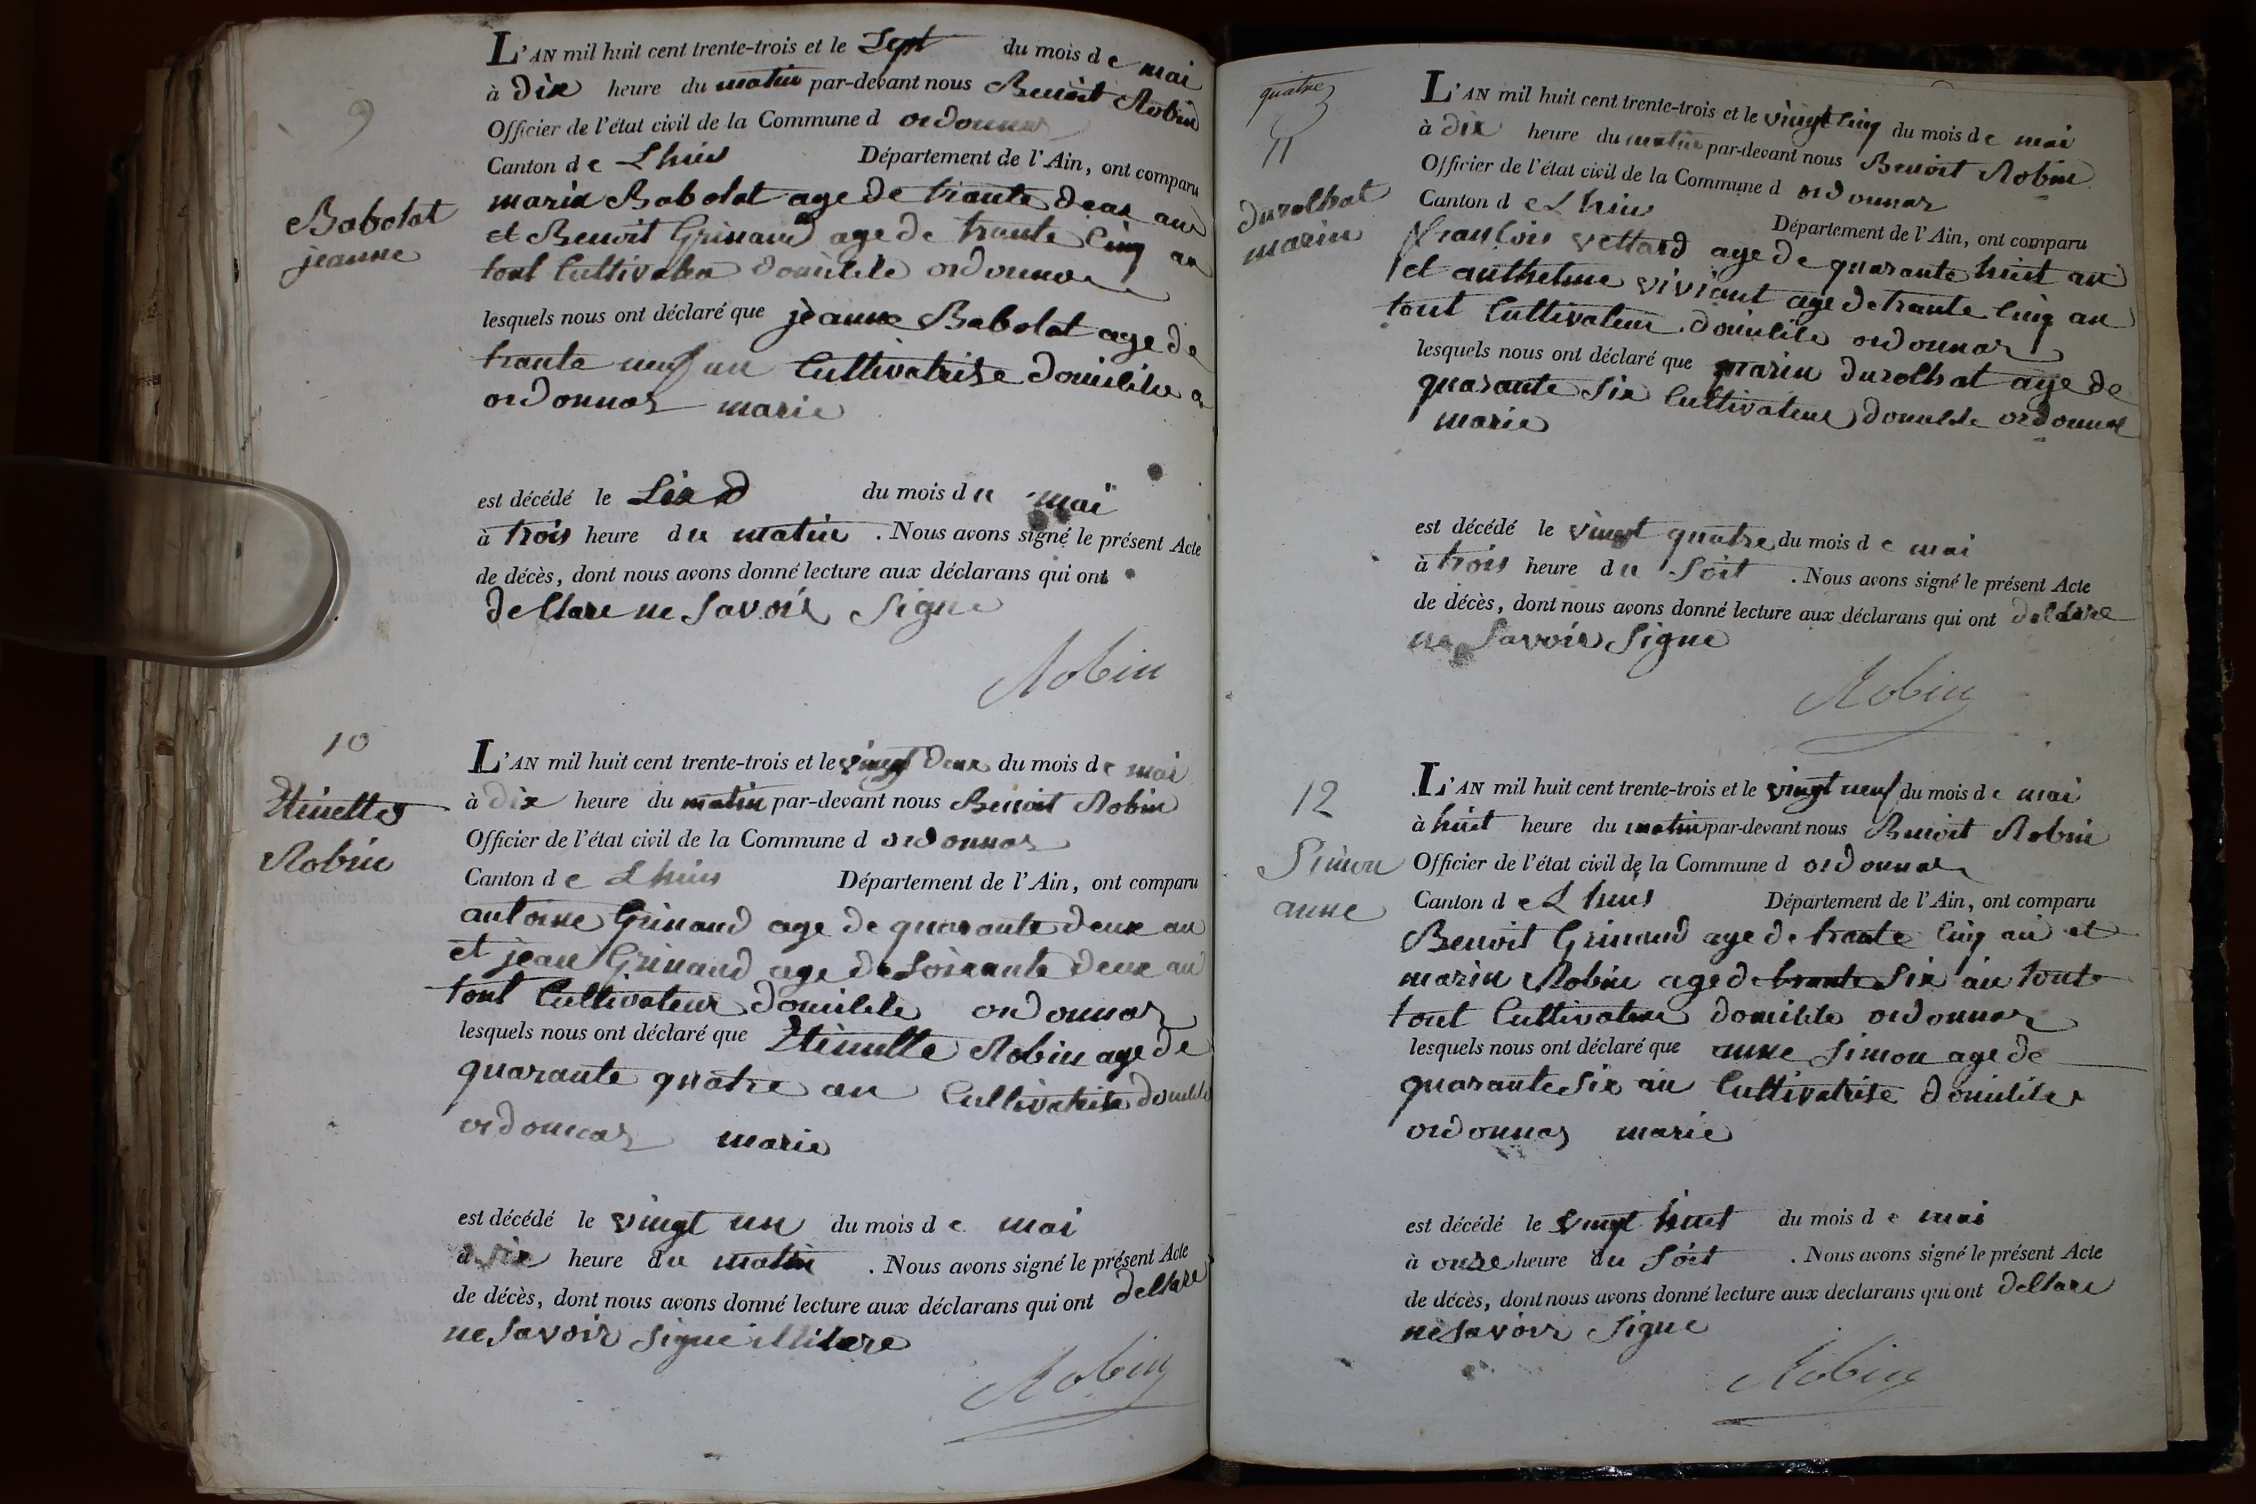 9
Babolat
jeanne
L'AN mil huit cent trente-trois et le Sept du mois de mai
à dix heure du matin par-devant nous Benoit Robin
Officier de l'état civil de la Commune d ordonnas
Canton de Lhuis Département de l'Ain, ont comparu
marin Babolat age de trante deux an
et Benoit Grinand age de trante Cinq an
tout Cultivateu domicile ordonnas
lesquels nous ont déclaré que jeanne Babolat age de
trante neuf an Cultivatrise domicilie a
ordonnas marie
est décédé le Six du mois du mai
à trois heure du matin . Nous avons signé le présent Acte
de décès, dont nous avons donné lecture aux déclarans qui ont
dellare ne Savoir Signe
Robin
10
Etienette
Robin
L'AN mil huit cent trente-trois et le vingt deux du mois de mai
à dix heure du matin par-devant nous Benoit Robin
Officier de l'état civil de la Commune d ordonnas
Canton de Lhuis Département de l'Ain, ont comparu
antoine Grinand age de quarante deux an
et jean Grinand age de Soixante deux an
tout Cultivateur domicile ordonnas
lesquels nous ont déclaré que Etienette Robin age de
quarante quatre an Cultivatrise domicile
ordonnas marie
est décédé le vingt un du mois de mai
à Six heure du matin . Nous avons signé le présent Acte
de décès, dont nous avons donné lecture aux déclarans qui ont dellare
ne Savoir Signe
Robin
quatre
11
durolhat
marin
L'AN mil huit cent trente-trois et le vingt Cinq du mois de mai
à dix heure du matin par-devant nous Benoit Robin
Officier de l'état civil de la Commune d ordonnas
Canton de Lhuis Département de l'Ain, ont comparu
françois vettard age de quarante huit an
et anthelme viviant age de trante Cinq an
tout Cultivateur domicile ordonnas
lesquels nous ont déclaré que marin durolhat age de
quarante Six Cultivateur domicile ordonnas
marie
est décédé le vingt quatre du mois de mai
à trois heure du Soit . Nous avons signé le présent Acte
de décès, dont nous avons donné lecture aux déclarans qui ont dellare
ne Savoir Signe
Robin
12
Simon
anne
L'AN mil huit cent trente-trois et le vingt neuf du mois de mai
à huit heure du matin par-devant nous Benoit Robin
Officier de l'état civil de la Commune d ordonnas
Canton de Lhuis Département de l'Ain, ont comparu
Benoit Grinand age de trante Cinq an et
marin Robin age de trante Six an toute
tout Cultivateur domicile ordonnas
lesquels nous ont déclaré que anne Simon age de
quarante Six an Cultivatrise domicilie
ordonnas marie
est décédé le vingt huit du mois de mai
à onze heure du Soit . Nous avons signé le présent Acte
de décès, dont nous avons donné lecture aux déclarans qui ont dellare
ne Savoir Signe
Robin